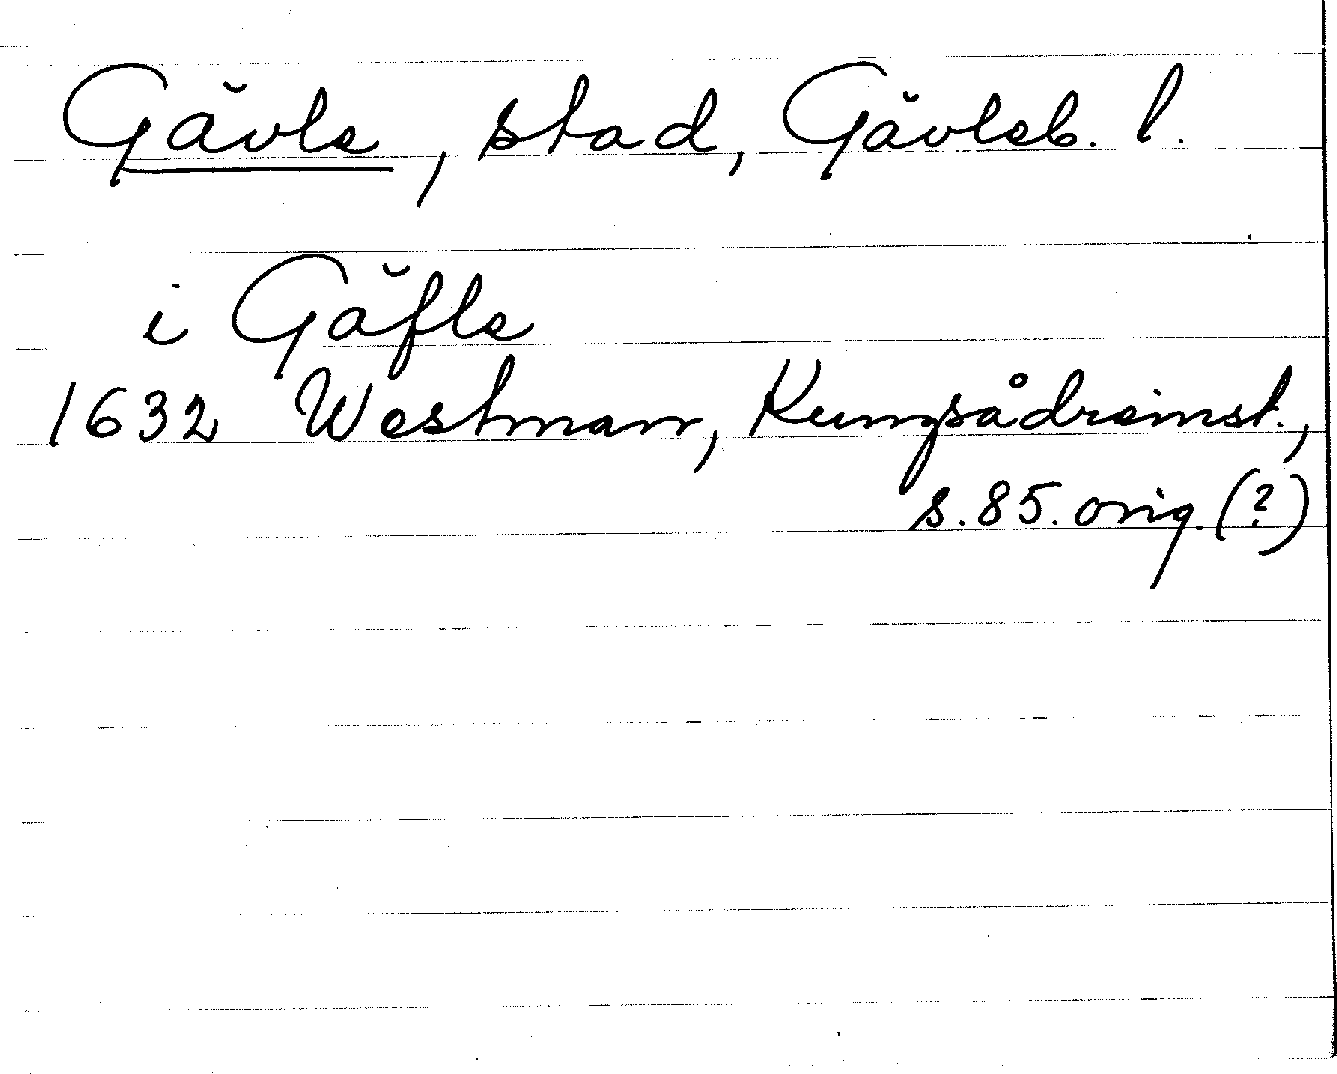 Gävle, stad, Gävleb. l.
i Gäfle
1632 Westman, Kungsådreinst.,
s. 85. orig. (?)